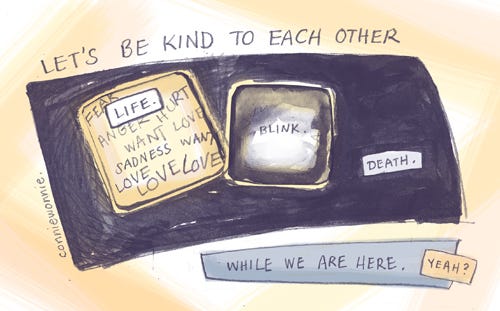 LET'S BE KIND TO EACH OTHER
LIFE.
FEAR
ANGER HURT
WANT LOVE
SADNESS WANT
LOVE
LOVE LOVE
BLINK.
DEATH.
WHILE WE ARE HERE.
YEAH?
conniewonnie.